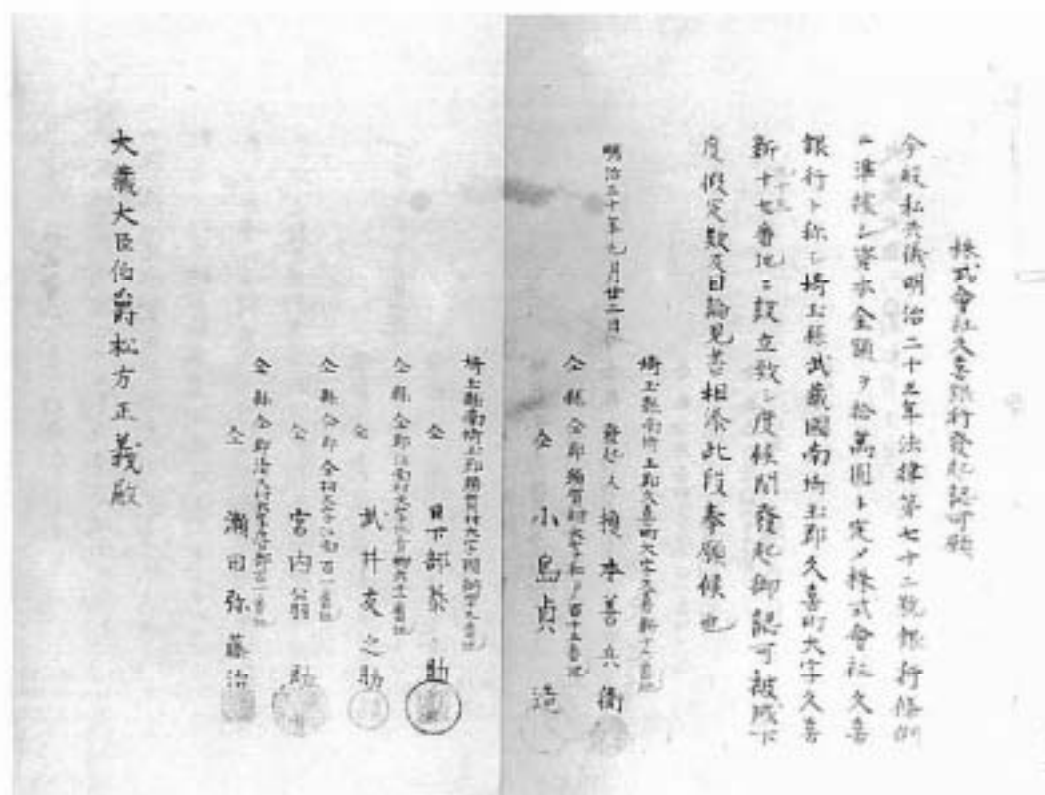 株式會社久喜銀行發起認可願
今般私共儀明治二十三年法律第七十二號銀行條例
ニ準據シ資本金額ヲ拾萬圓ト定メ株式會社久喜
銀行ト称シ埼玉縣武藏國南埼玉郡久喜町大字久喜
新十七番地ニ設立致シ度候間發起御認可被成下
度假定款及目論見書相添此段奉願候也
明治三十年九月廿二日
埼玉縣南埼玉郡久喜町大字久喜新
發起人 榎本善兵衛
仝縣仝郡須賀村大字和戸百十五番地
仝 小島貞造
埼玉縣南埼玉郡須賀村大字
仝 日下部 助
仝縣仝郡江面村大字
仝 武井友之助
仝縣仝郡仝村大字江面百一番地
仝 宮内翁助
仝縣仝郡
仝 瀬田弥藤治
大藏大臣伯爵松方正義殿